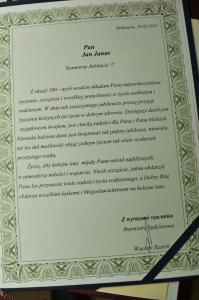 Sędziszów, 30.05.2013
Pan
Jan Janus
Szanowny Jubilacie !!!
Z okazji 100 - nych urodzin składam Panu najserdeczniejsze
życzenia, szczęścia i wszelkiej pomyślności w życiu osobistym i
rodzinnym. W dniu tak zaszczytnego jubileuszu proszę przyjąć
życzenia kolejnych lat życia w dobrym zdrowiu. Dzisiejszy dzień jest
wyjątkowym świętem, jest chwilą radości dla Pana i Pana bliskich.
Niewielu ludziom dane jest świętować tak piękny jubileusz, niewielu
też los dał możliwość objąć jednym życiem tak wiele wydarzeń
przeżytego wieku.
Życzę, aby kolejne lata mijały Panu wśród najbliższych,
w atmosferze miłości i wsparcia. Niech szczęście, jakim obdarzył
Pana los przynosi wiele radości życia codziennego, a Dobry Bóg
obdarza wszelkimi łaskami i błogosławieństwem na kolejne lata.
Z wyrazami szacunku
Burmistrz Sędziszowa
Wacław Szarek